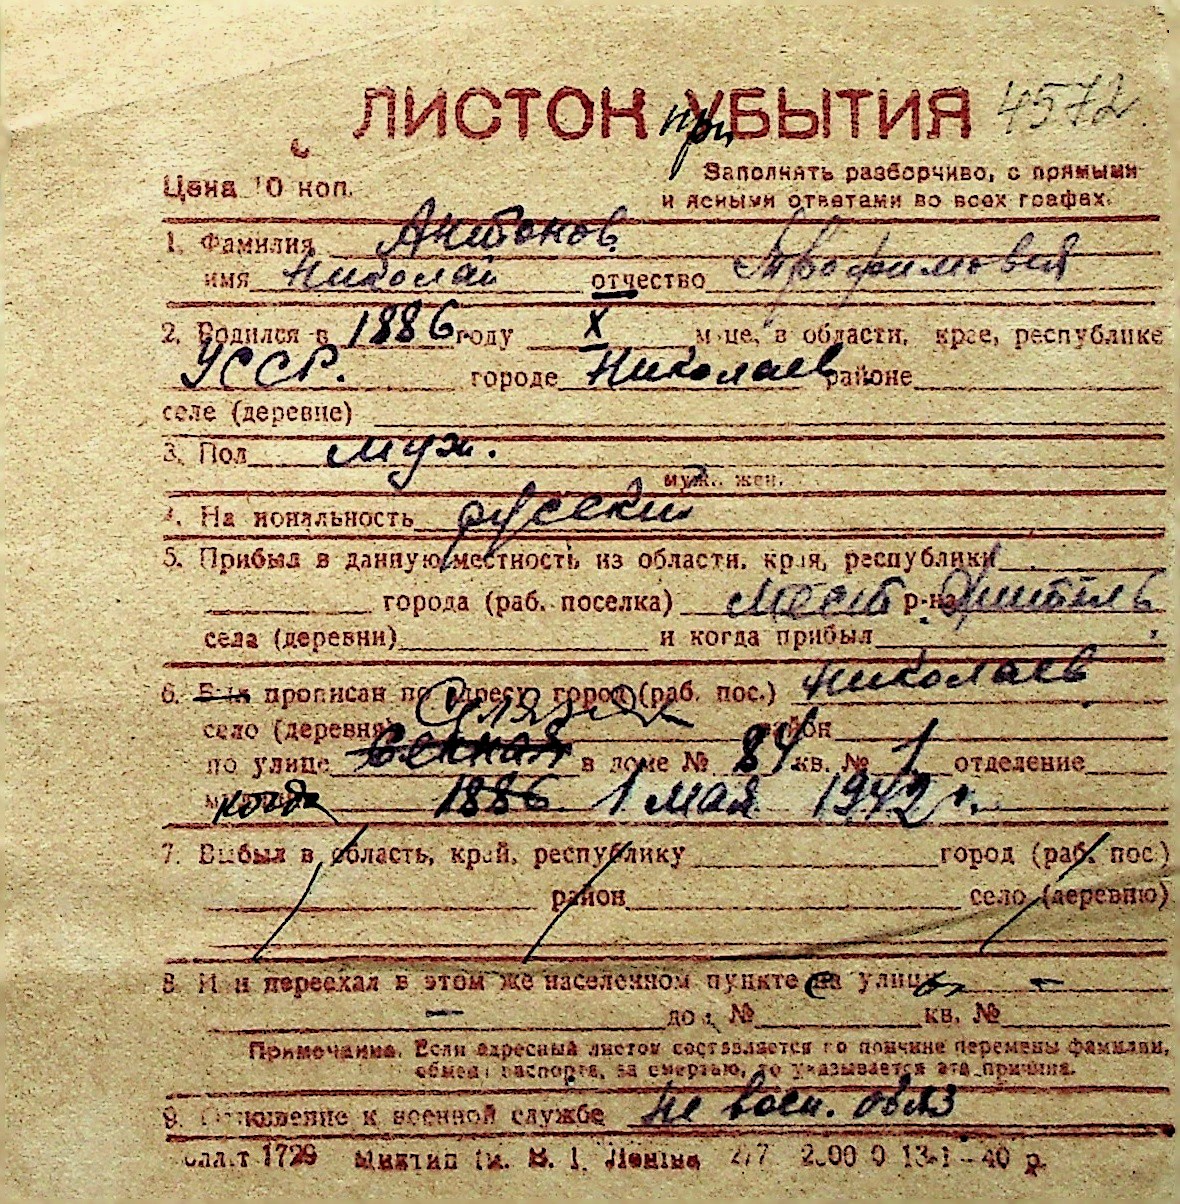 ЛИСТОК при УБЫТИЯ 4572
Цена 10 коп.
Заполнять разборчиво, с прямыми
и ясными ответами во всех графах.
1. Фамилия Антонов
имя Николай отчество Трофимович
2. Родился в 1886 году X м-це, в области, крае, республике
УССР. городе Николаев районе
селе (деревне)
3. Пол муж.
муж. жен.
4. Национальность русский
5. Прибыл в данную местность из области, края, республики
города (раб. поселка) мест р-на житель
села (деревни) и когда прибыл
6. Был прописан по адресу город (раб. пос.) Николаев
село (деревня) район
по улице в доме № 84 кв. № 1 отделение
когда 1886 1 мая 1942 г.
7. Выбыл в область, край, республику город (раб. пос.)
район село (деревню)
8. Или переехал в этом же населенном пункте с улицы –
– дом № кв. №
Примечание. Если адресный листок составляется по причине перемены фамилии,
обмена паспорта, за смертью, то указывается эта причина.
9. Отношение к военной службе не воен. обяз
1729 ім. В. І. Леніна 13-1-40 р.